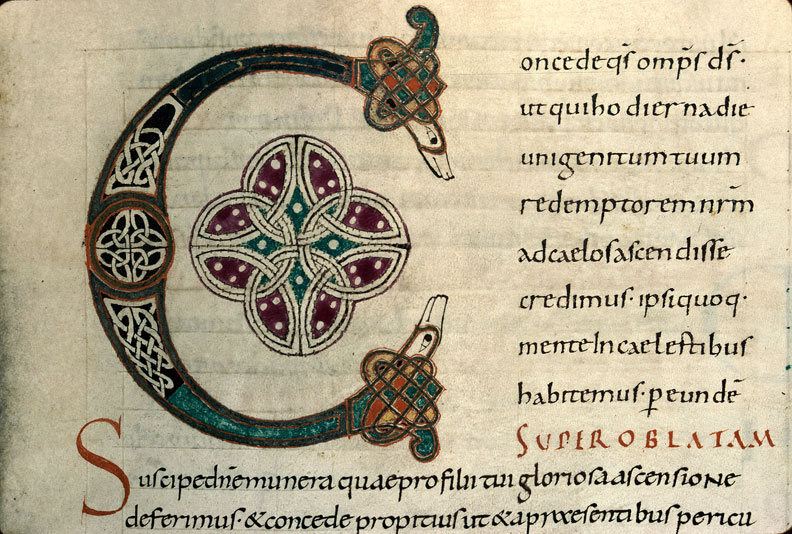 Concede qs̄ omp̄s ds̄·
ut qui hodierna die
unigenitum tuum
redemptorem nrm̄
ad caelos ascendisse
credimus· ipsi quoq·
mente In caelestibus
habitemus· p̄ eundē
SUPER OBLATAM
Suscipe dnē munera quae pro filii tui gloriosa ascensione
deferimus· & concede propitius ut & a praesentibus pericu